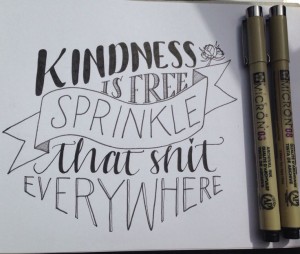 KINDNESS
IS FREE
SPRINKLE
that shit
EVERYWHERE
MICRON
MICRON 08